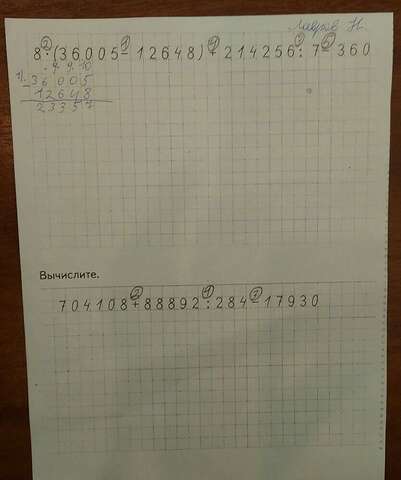 Лавров Н.
② ① ④ ③ ⑤
8·(36005-12648)+214256:7-360
· 9 9 10
1) 36005
- 12648
23357
Вычислите.
② ① ③
704108+88892:284-17930